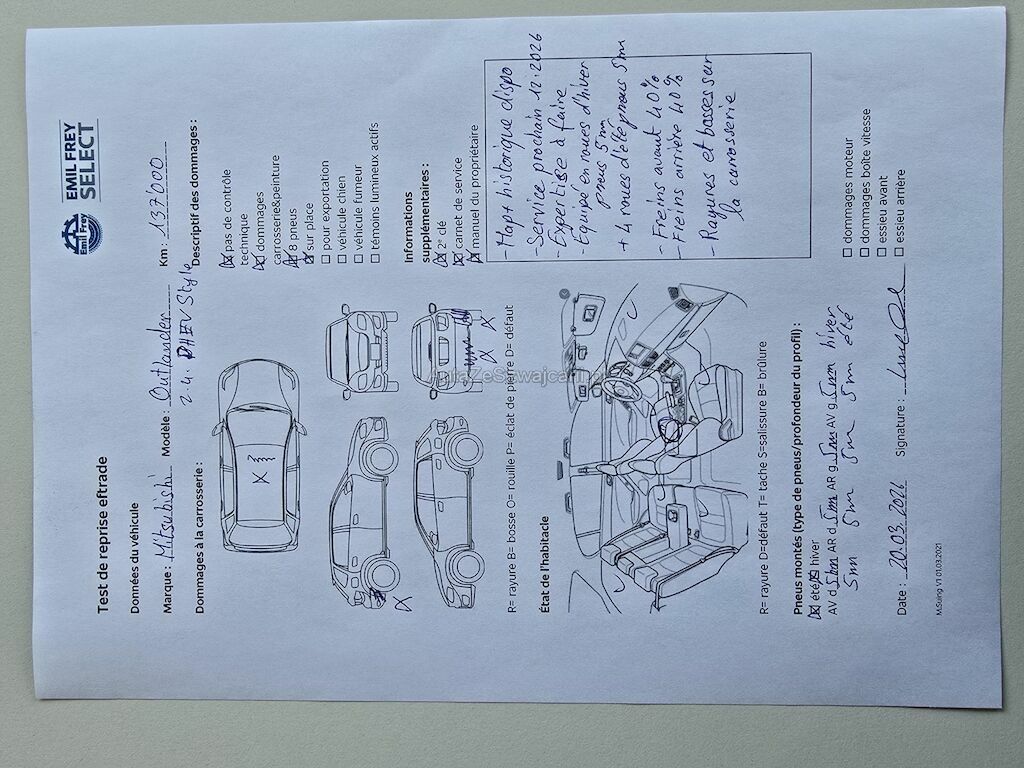 EMIL FREY
SELECT
Emil Frey
Test de reprise eftrade
Données du véhicule
Marque : Mitsubishi Modèle : Outlander Km : 137'000
2.4. PHEV Style
Dommages à la carrosserie :
Descriptif des dommages :
pas de contrôle
technique
dommages
carrosserie&peinture
8 pneus
sur place
pour exportation
véhicule chien
véhicule fumeur
témoins lumineux actifs
R= rayure B= bosse O= rouille P= éclat de pierre D= défaut
Informations
supplémentaires :
2° clé
carnet de service
manuel du propriétaire
- Map + historique dispo
- Service prochain 12.2026
- Expertise à faire
- Equipé en roues d'hiver
pneus 5m
+ 4 roues d'été pneus 5mm
- Freins avant 40%
- Freins arrière 40%
- Rayures et bosses sur
la carrosserie
État de l'habitacle
R= rayure D=défaut T= tache S=salissure B= brûlure
Pneus montés (type de pneus/profondeur du profil) :
été hiver
AV d 5mm AR d 5mm AR g 5mm AV g 5mm hiver
5mm 5mm 5m 5m été
dommages moteur
dommages boîte vitesse
essieu avant
essieu arrière
Date : 20.03.2026 Signature :
M.Suing V1 01.03.2021